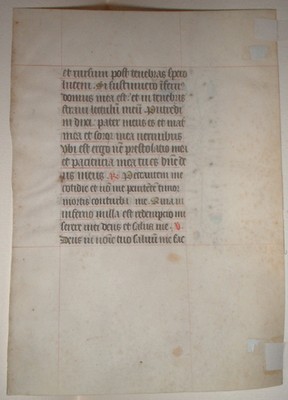 et rursum post tenebras spero
lucem. Si sustinuero infern9
domus mea est. et in tenebris
stravi lectulum meum. Putredi
ni dixi. pater meus es et mat
mea et soror mea vermibus
Ubi est ergo nc prestolatio mea
et paciencia mea tu es dne de
us meus. R. Peccantem me
cotidie et no me penitete timor
mortis conturbat me. Quia in
inferno nulla est redempcio mi
serere mei deus et salva me. V.
Deus in noie tuo salvum me fac